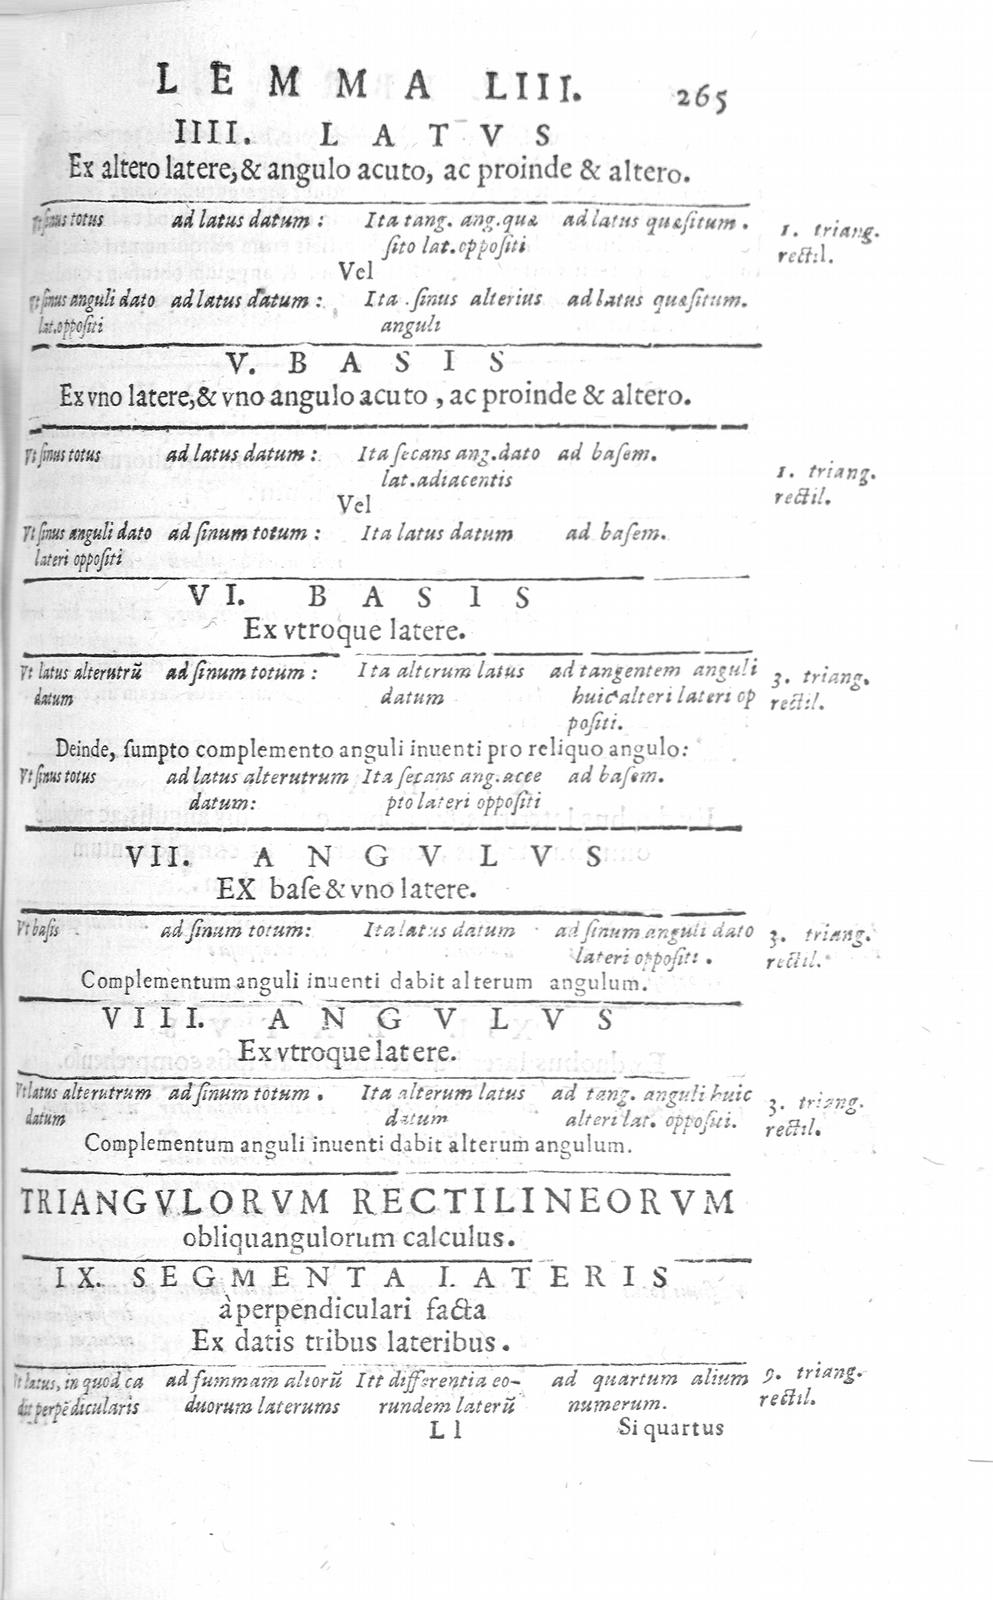 LEMMA LIII. 265
IIII. LATVS
Ex altero latere, & angulo acuto, ac proinde & altero.
Vt sinus totus ad latus datum : Ita tang. ang. quæ ad latus quæsitum . 1. triang.
sito lat. oppositi rectil.
Vel
Vt sinus anguli dato ad latus datum : Ita sinus alterius ad latus quæsitum.
lat. oppositi anguli
V. BASIS
Ex vno latere, & vno angulo acuto , ac proinde & altero.
Vt sinus totus ad latus datum : Ita secans ang. dato ad basem.
lat. adiacentis 1. triang.
Vel rectil.
Vt sinus anguli dato ad sinum totum : Ita latus datum ad basem.
lateri oppositi
VI. BASIS
Ex vtroque latere.
Vt latus alterutrũ ad sinum totum : Ita alterum latus ad tangentem anguli 3. triang.
datum datum huic alteri lateri op rectil.
positi.
Deinde, sumpto complemento anguli inuenti pro reliquo angulo:
Vt sinus totus ad latus alterutrum Ita secans ang. acce ad basem.
datum: pto lateri oppositi
VII. ANGVLVS
EX base & vno latere.
Vt basis ad sinum totum: Ita latus datum ad sinum anguli dato 3. triang.
lateri oppositi . rectil.
Complementum anguli inuenti dabit alterum angulum.
VIII. ANGVLVS
Ex vtroque latere.
Vt latus alterutrum ad sinum totum . Ita alterum latus ad tang. anguli huic 3. triang.
datum datum alteri lat. oppositi. rectil.
Complementum anguli inuenti dabit alterum angulum.
TRIANGVLORVM RECTILINEORVM
obliquangulorum calculus.
IX. SEGMENTA LATERIS
à perpendiculari facta
Ex datis tribus lateribus.
Vt latus, in quod ca ad summam aliorũ Itt differentia eo- ad quartum alium 9. triang.
dit perpẽdicularis duorum laterums rundem laterũ numerum. rectil.
Ll Si quartus